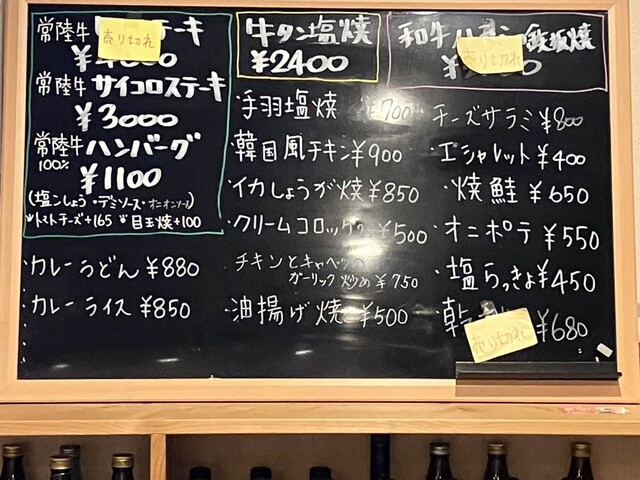 常陸牛 ステーキ
売り切れ
常陸牛 サイコロステーキ
¥3000
常陸牛 ハンバーグ
100%
¥1100
(塩こしょう・デミソース・オニオンソース)
トマトチーズ+165 目玉焼+100
・カレーうどん ¥880
・カレーライス ¥850
牛タン塩焼
¥2400
・手羽塩焼 ¥700
・韓国風チキン ¥900
・イカしょうが焼 ¥850
・クリームコロッケ ¥500
・チキンとキャベツの
ガーリック炒め ¥750
・油揚げ焼 ¥500
和牛 鉄板焼
売り切れ
・チーズサラミ ¥800
・エシャレット ¥400
・焼鮭 ¥650
・オニポテ ¥550
・塩らっきょ ¥450
・乾 ¥680
売り切れ